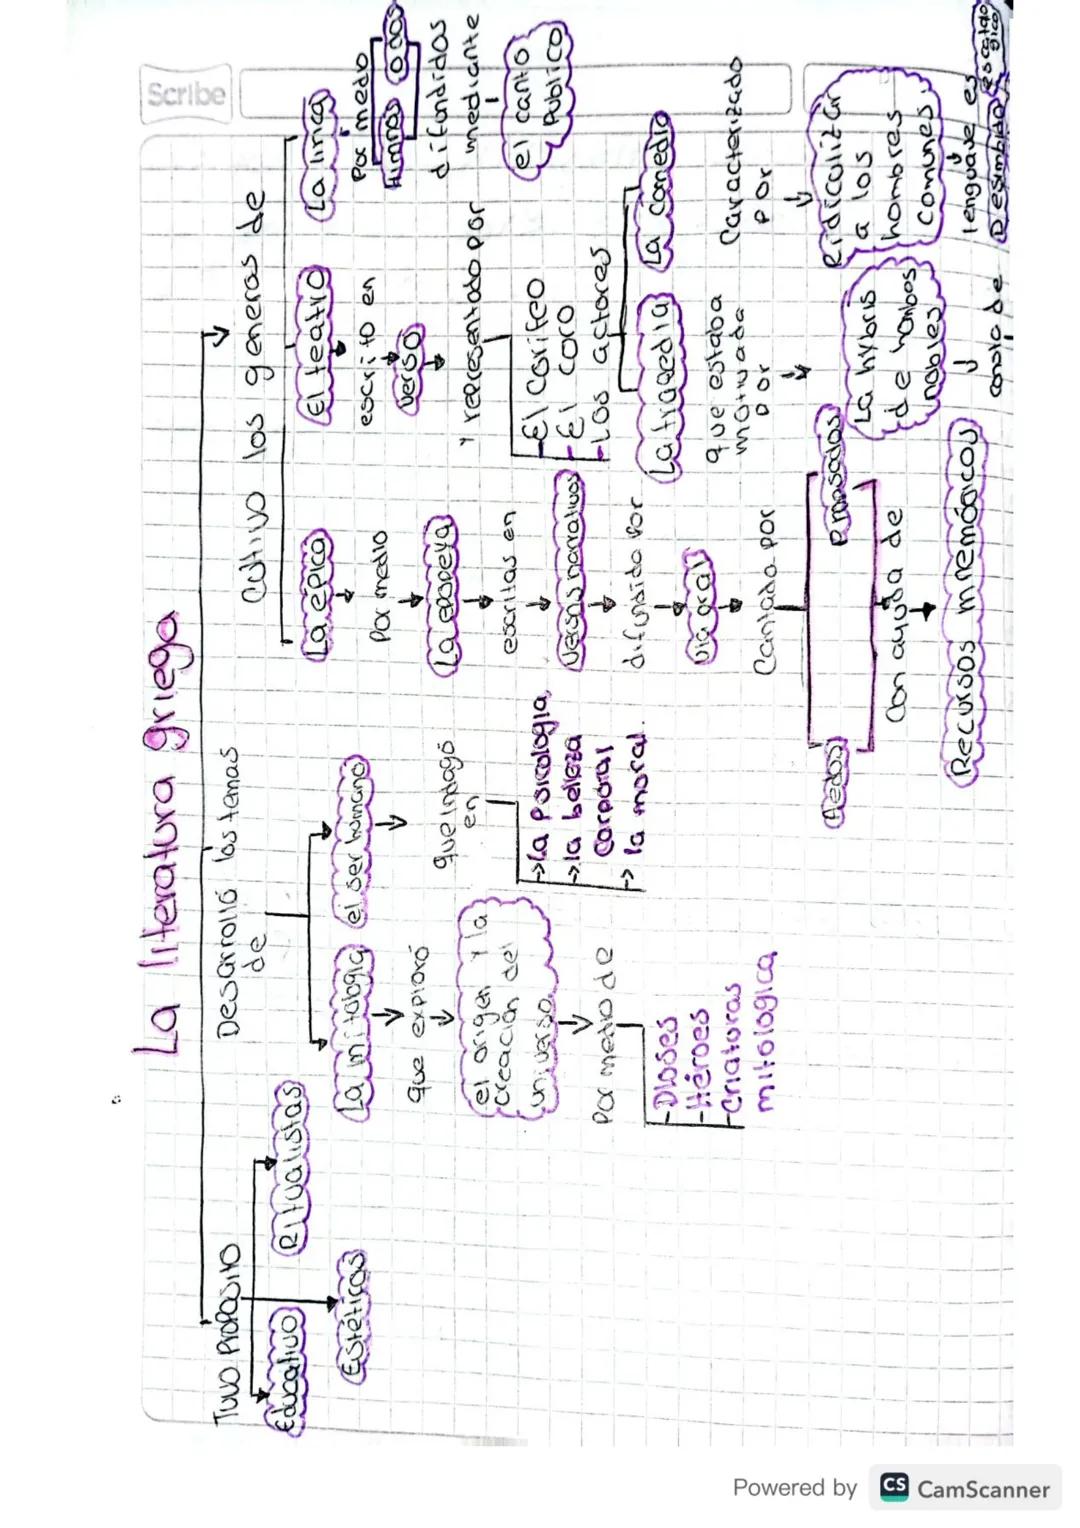 Scribe
La literatura griega
Tuvo Proposito
Educativo
Ritualistas
Estéticas
Desarrolló los temas
de
La mitologia
que exploró
el origen y la
creación del
universo.
Por medio de
-Dioses
-Héroes
-criaturas
mitologica
el ser humano
que indagó
en
->La psicologia,
->la belleza
corporal
-> la moral.
Cultivo los generos de
La épica
Por medio
La epopeya
escritas en
versos narrativos
difundida por
Via oral
Cantada por
Aedos
Con ayuda de
Recursos mnemógicos
El teatro
escrito en
verso
y representado por
-El Corifeo
-El coro
-Los actores
La tragedia
que estaba
motivada
por
La hybris
de hombes
nobles
La comedia
Caracterizado
por
Ridiculizar
a los
hombres
comunes.
lenguaje es
Desinhibido
La lirica
Por medio
Himnos
odas
difundidas
mediante
el canto
Publico
Powered by CS CamScanner